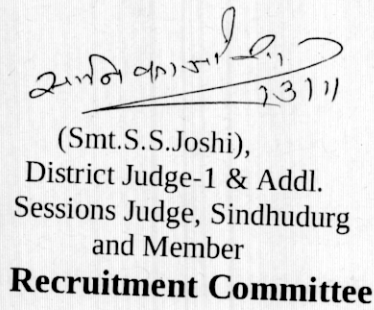 23/11
(Smt.S.S.Joshi),
District Judge-1 & Addl.
Sessions Judge, Sindhudurg
and Member
Recruitment Committee